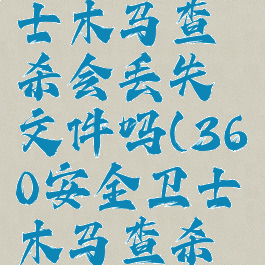 士木马查
杀会丢失
文件吗(36
0安全卫士
木马查杀